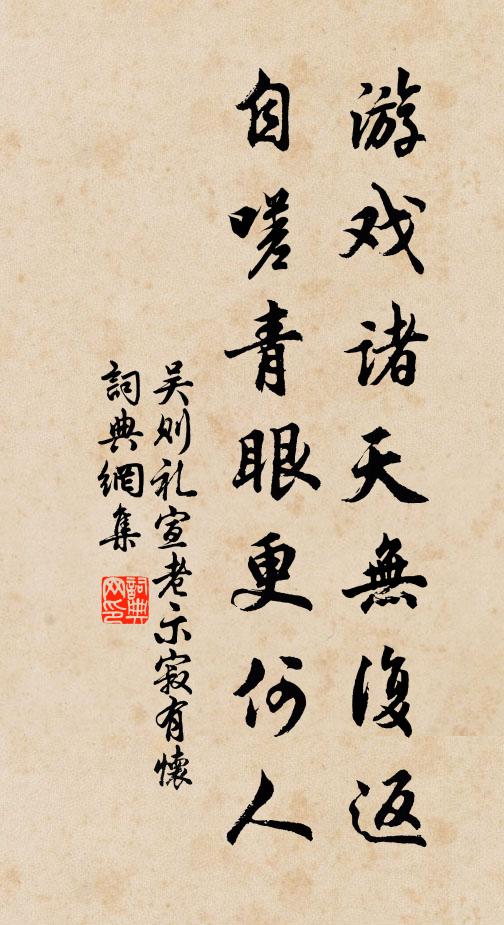 游戏诸天無復返
自嗟青眼更何人
吴则礼宣老示寂有懷
詞典網集
詞典
网印